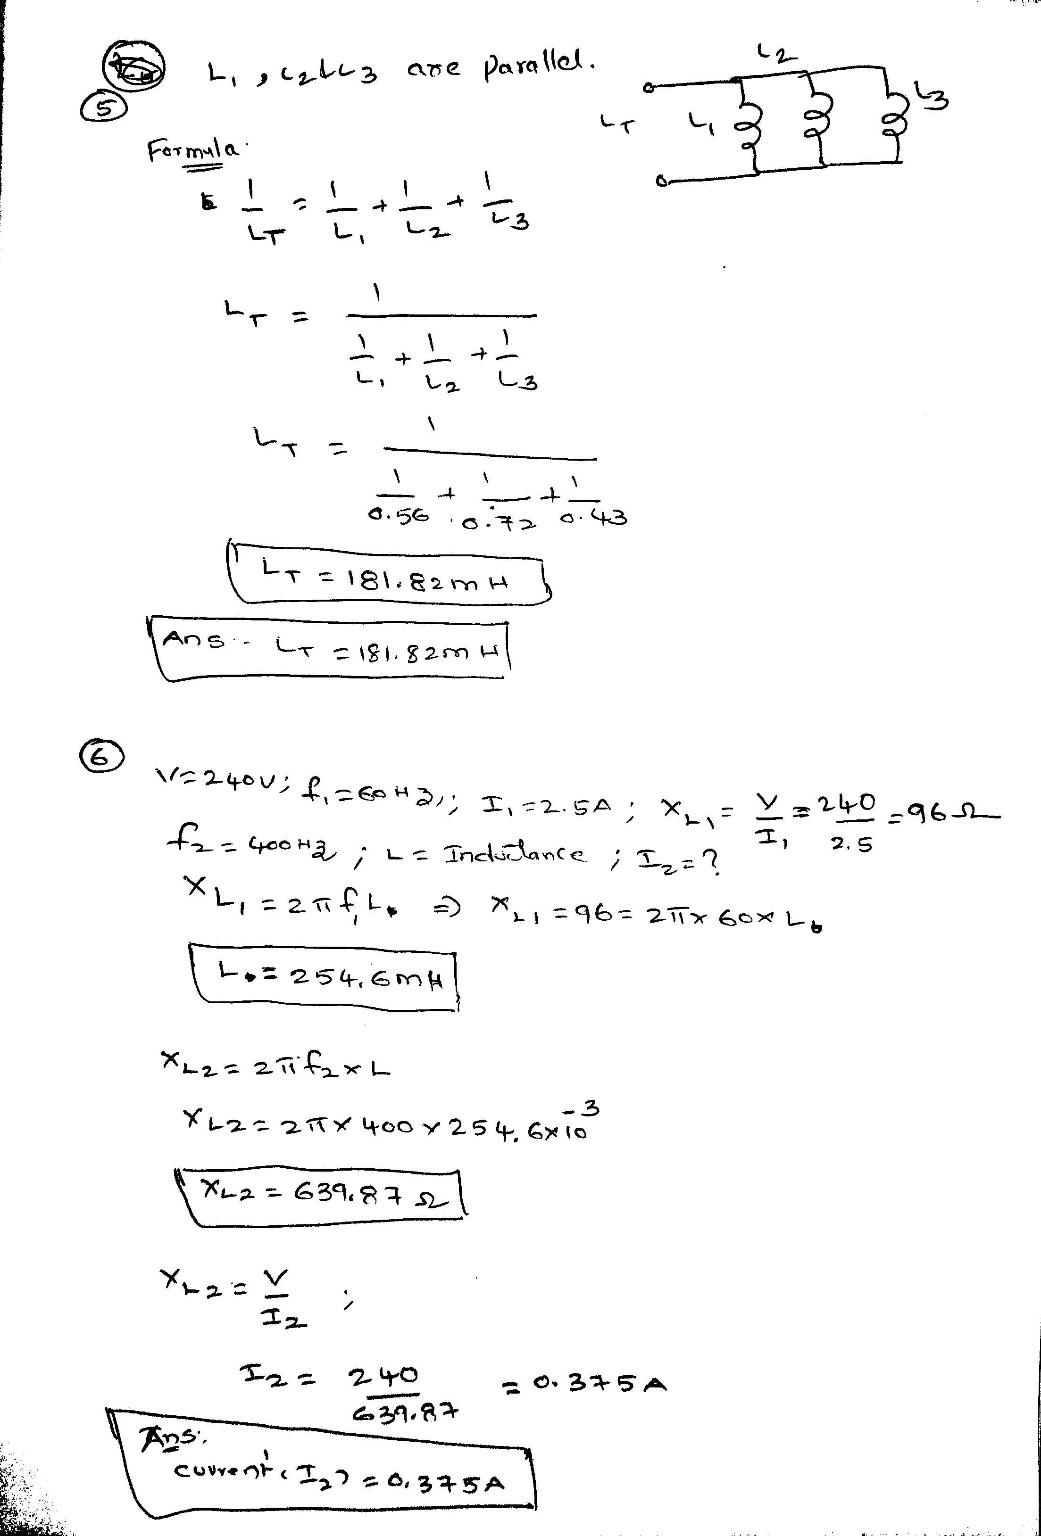 L1, L2 & L3 are parallel.
5
L2
LT L1 L3
Formula:
1/LT = 1/L1 + 1/L2 + 1/L3
LT = 1/(1/L1 + 1/L2 + 1/L3)
LT = 1/(1/0.56 + 1/0.72 + 1/0.43)
LT = 181.82mH
Ans:- LT = 181.82mH
6
V=240V; f1=60Hz; I1=2.5A; XL1 = V/I1 = 240/2.5 = 96Ω
f2=400Hz; L= Inductance; I2=?
XL1 = 2πf1L ⇒ XL1 = 96 = 2π×60×L
L = 254.6mH
XL2 = 2πf2×L
XL2 = 2π×400×254.6×10⁻³
XL2 = 639.87Ω
XL2 = V/I2 ;
I2 = 240/639.87 = 0.375A
Ans:
current (I2) = 0.375A